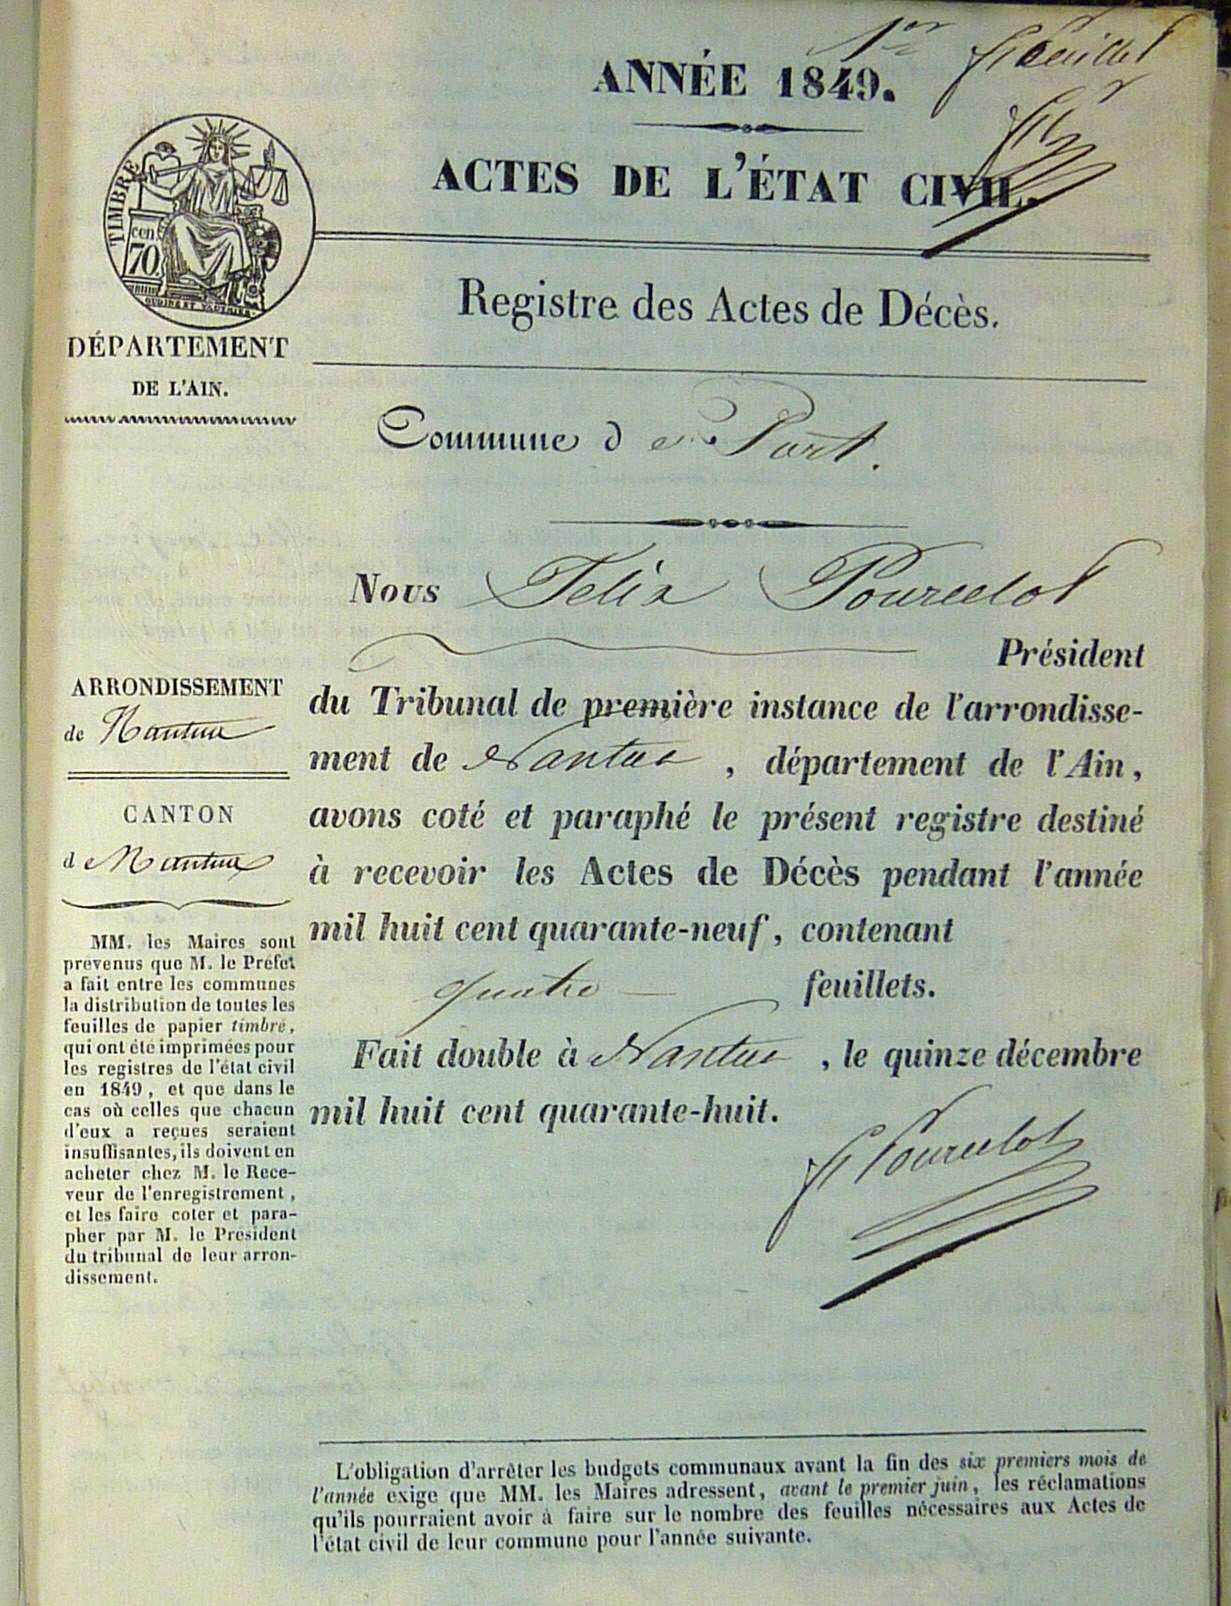 1er feuillet
ANNÉE 1849.
ACTES DE L'ÉTAT CIVIL.
TIMBRE
cen.
70.
OUDINE ET VAUTHIER
DÉPARTEMENT
DE L'AIN.
Registre des Actes de Décès.
Commune de Port.
Nous Felix Pourcelot
Président
du Tribunal de première instance de l'arrondisse-
ment de Nantua, département de l'Ain,
avons coté et paraphé le présent registre destiné
à recevoir les Actes de Décès pendant l'année
mil huit cent quarante-neuf, contenant
quatre feuillets.
Fait double à Nantua, le quinze décembre
mil huit cent quarante-huit.
f Pourcelot
ARRONDISSEMENT
de Nantua
CANTON
de Nantua
MM. les Maires sont
prévenus que M. le Préfet
a fait entre les communes
la distribution de toutes les
feuilles de papier timbré,
qui ont été imprimées pour
les registres de l'état civil
en 1849, et que dans le
cas où celles que chacun
d'eux a reçues seraient
insuffisantes, ils doivent en
acheter chez M. le Rece-
veur de l'enregistrement,
et les faire coter et para-
pher par M. le Président
du tribunal de leur arron-
dissement.
L'obligation d'arrêter les budgets communaux avant la fin des six premiers mois de
l'année exige que MM. les Maires adressent, avant le premier juin, les réclamations
qu'ils pourraient avoir à faire sur le nombre des feuilles nécessaires aux Actes de
l'état civil de leur commune pour l'année suivante.